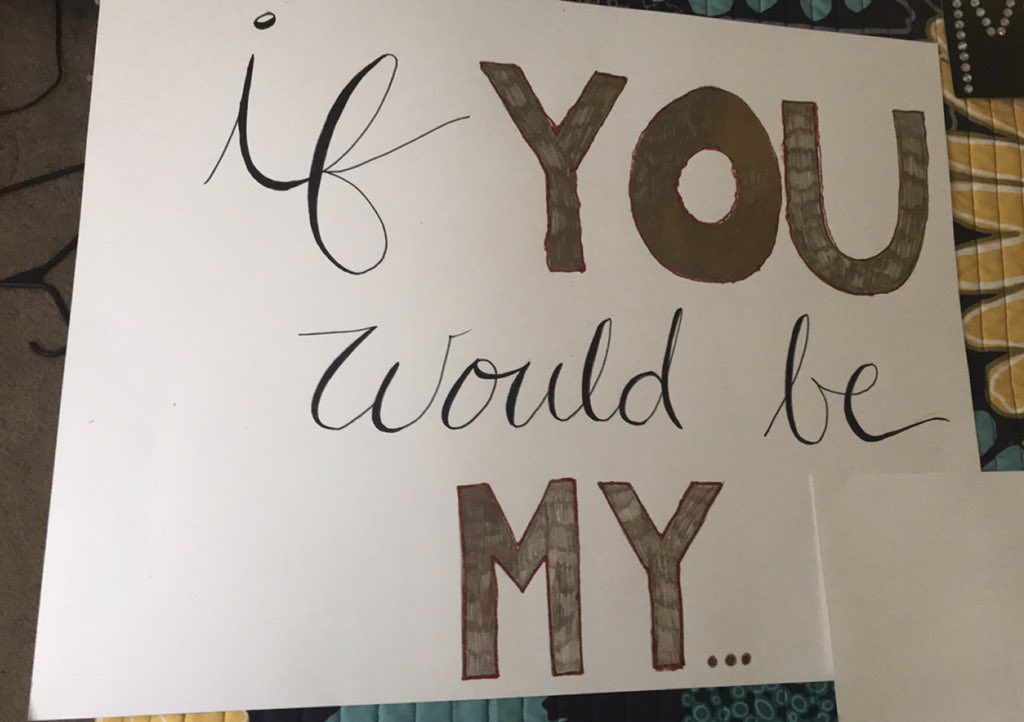 if YOU
would be
MY...